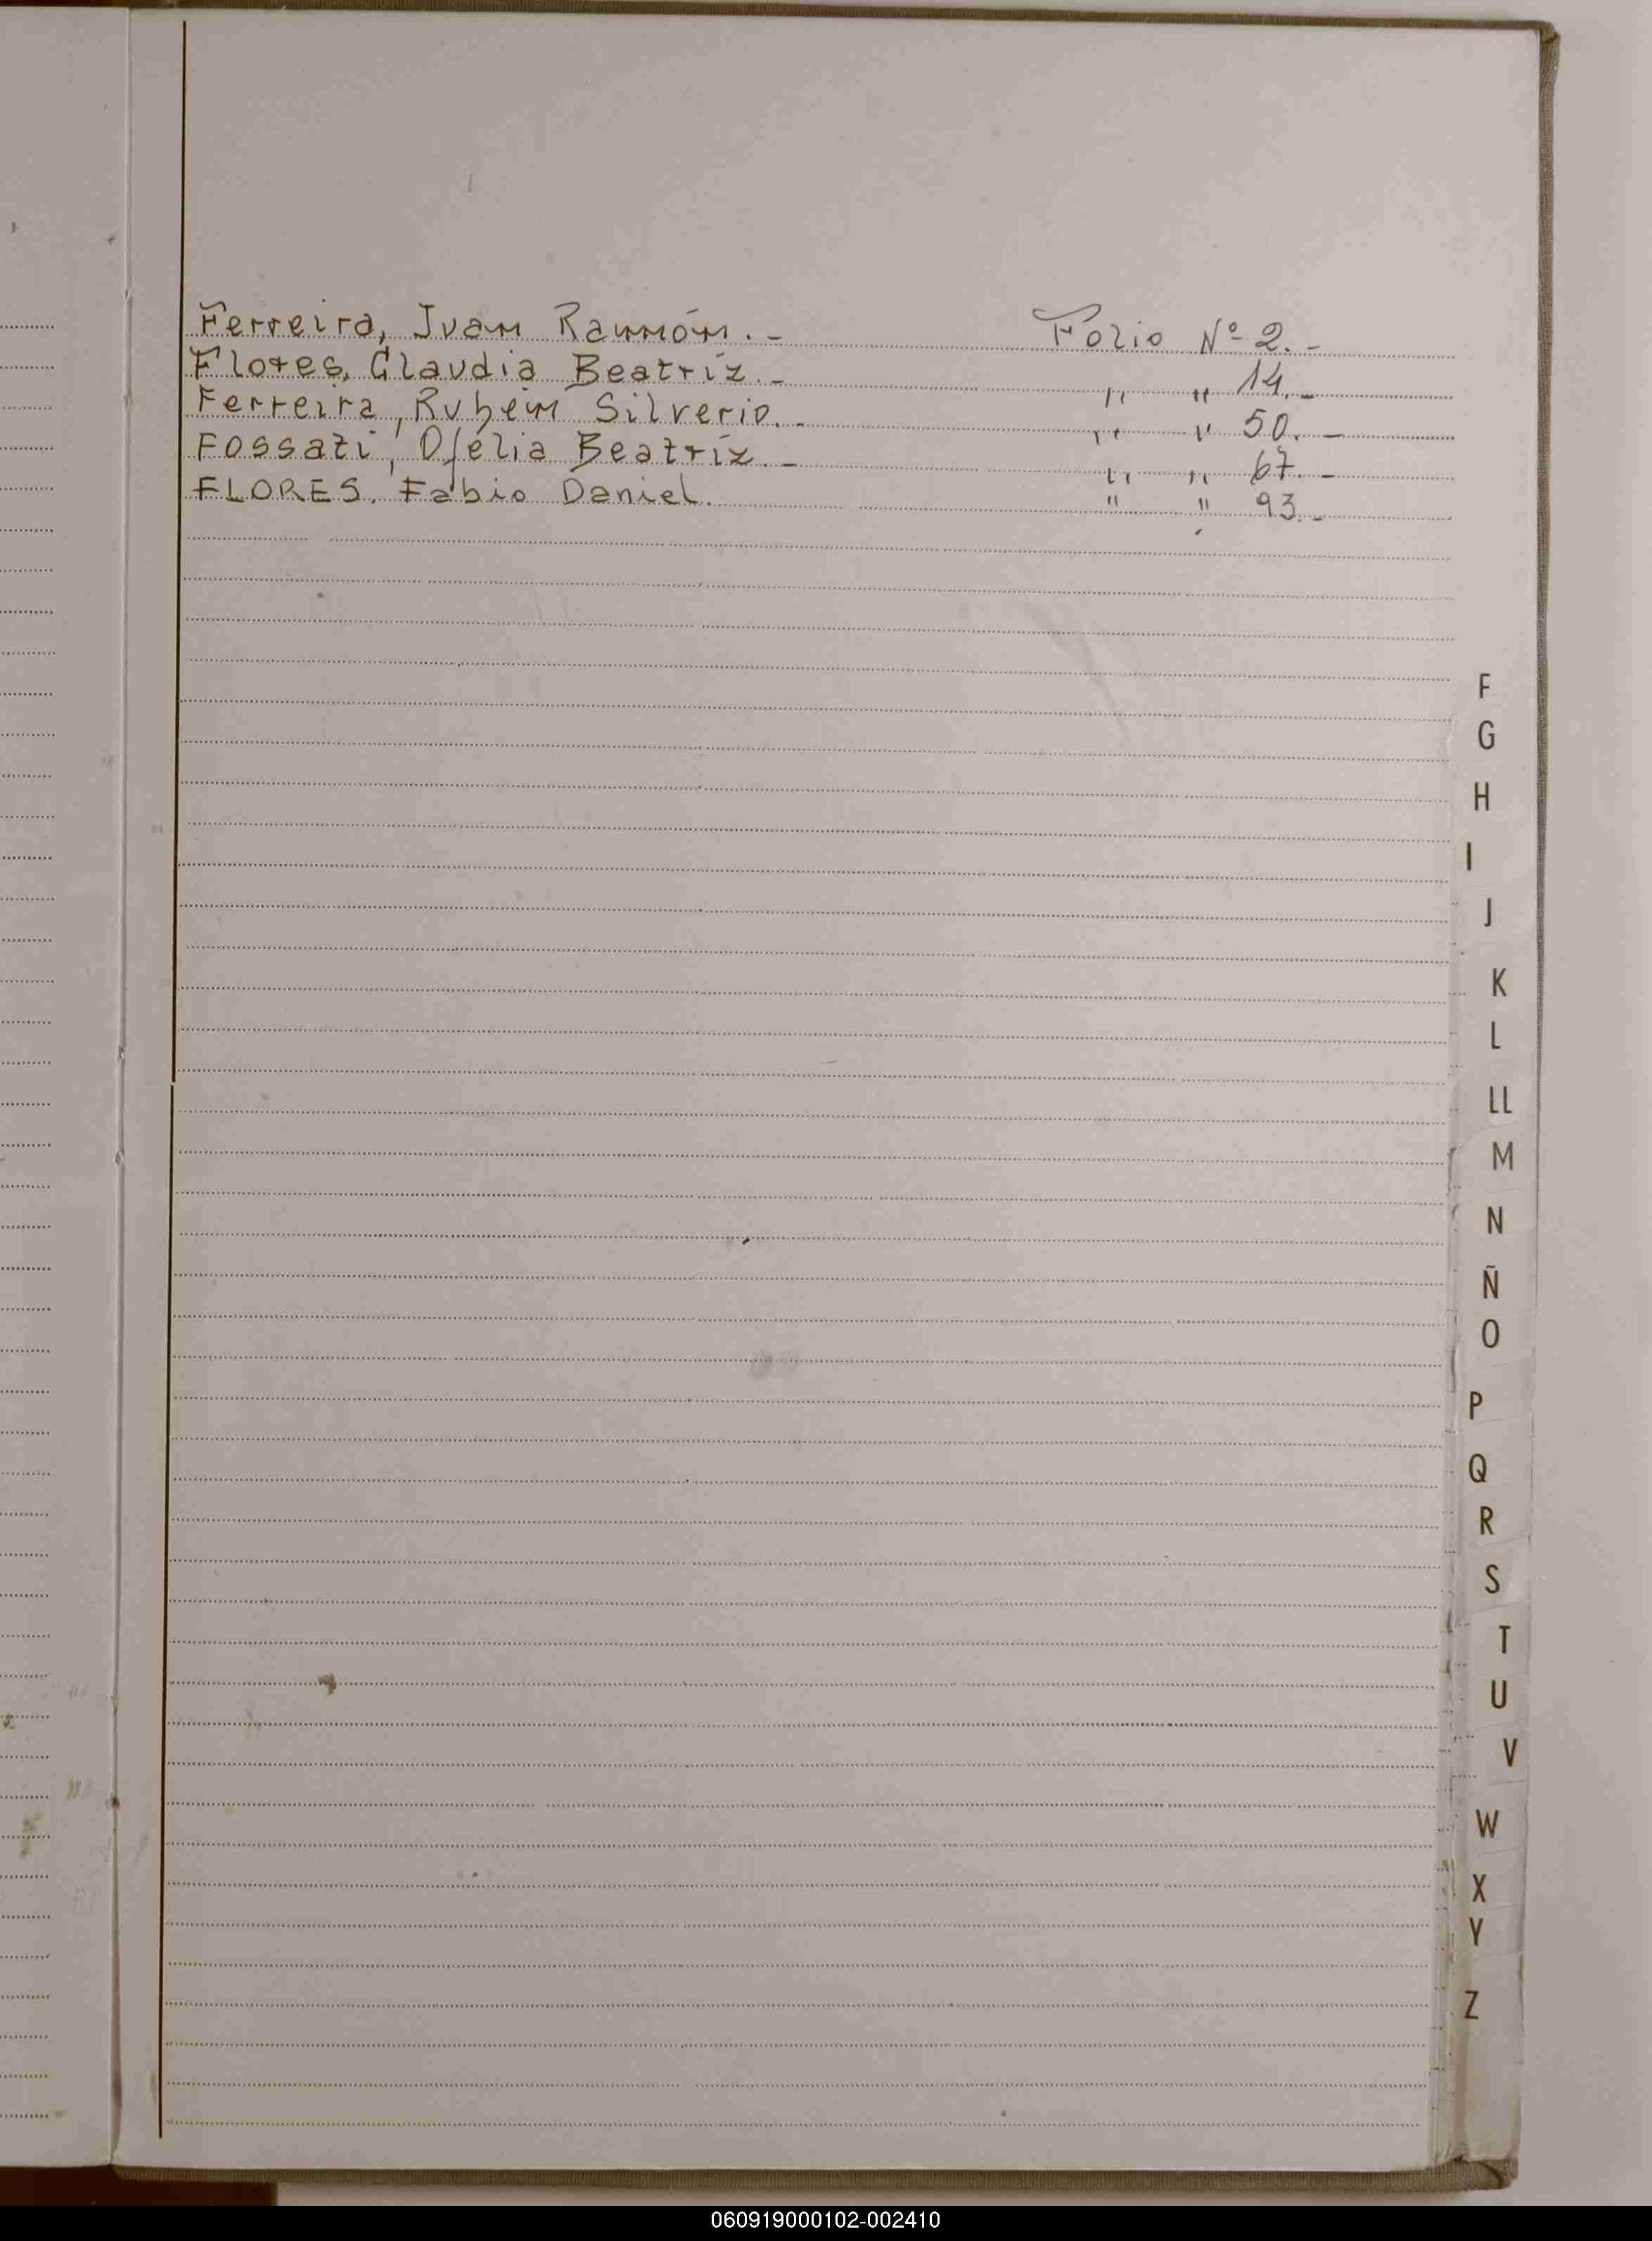 Ferreira, Juan Ramón.- Folio Nº 2.-
Flores, Claudia Beatríz.- " " 14.-
Ferreira, Rubém Silverio.- " " 50.-
Fossati, Ofélia Beatríz.- " " 67.-
FLORES, Fabio Daniel. " " 93.-
F
G
H
I
J
K
L
LL
M
N
Ñ
O
P
Q
R
S
T
U
V
W
X
Y
Z
060919000102-002410